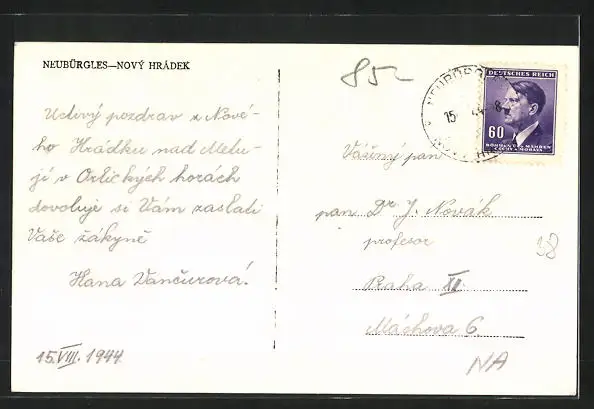 NEUBÜRGLES—NOVÝ HRÁDEK
Uctivý pozdrav z Nové-
ho Hrádku nad Metu-
jí v Orlických horách
dovoluje si Vám zaslati
Vaše žákyně
Hana Vančurová!
15.VIII. 1944
85
15
44-8
DEUTSCHES REICH
60
BÖHMEN U. MÄHREN
ČECHY A MORAVA
Vážený pan
pan Dr J. Novák
profesor
Praha XII.
Máchova 6.
38
NA